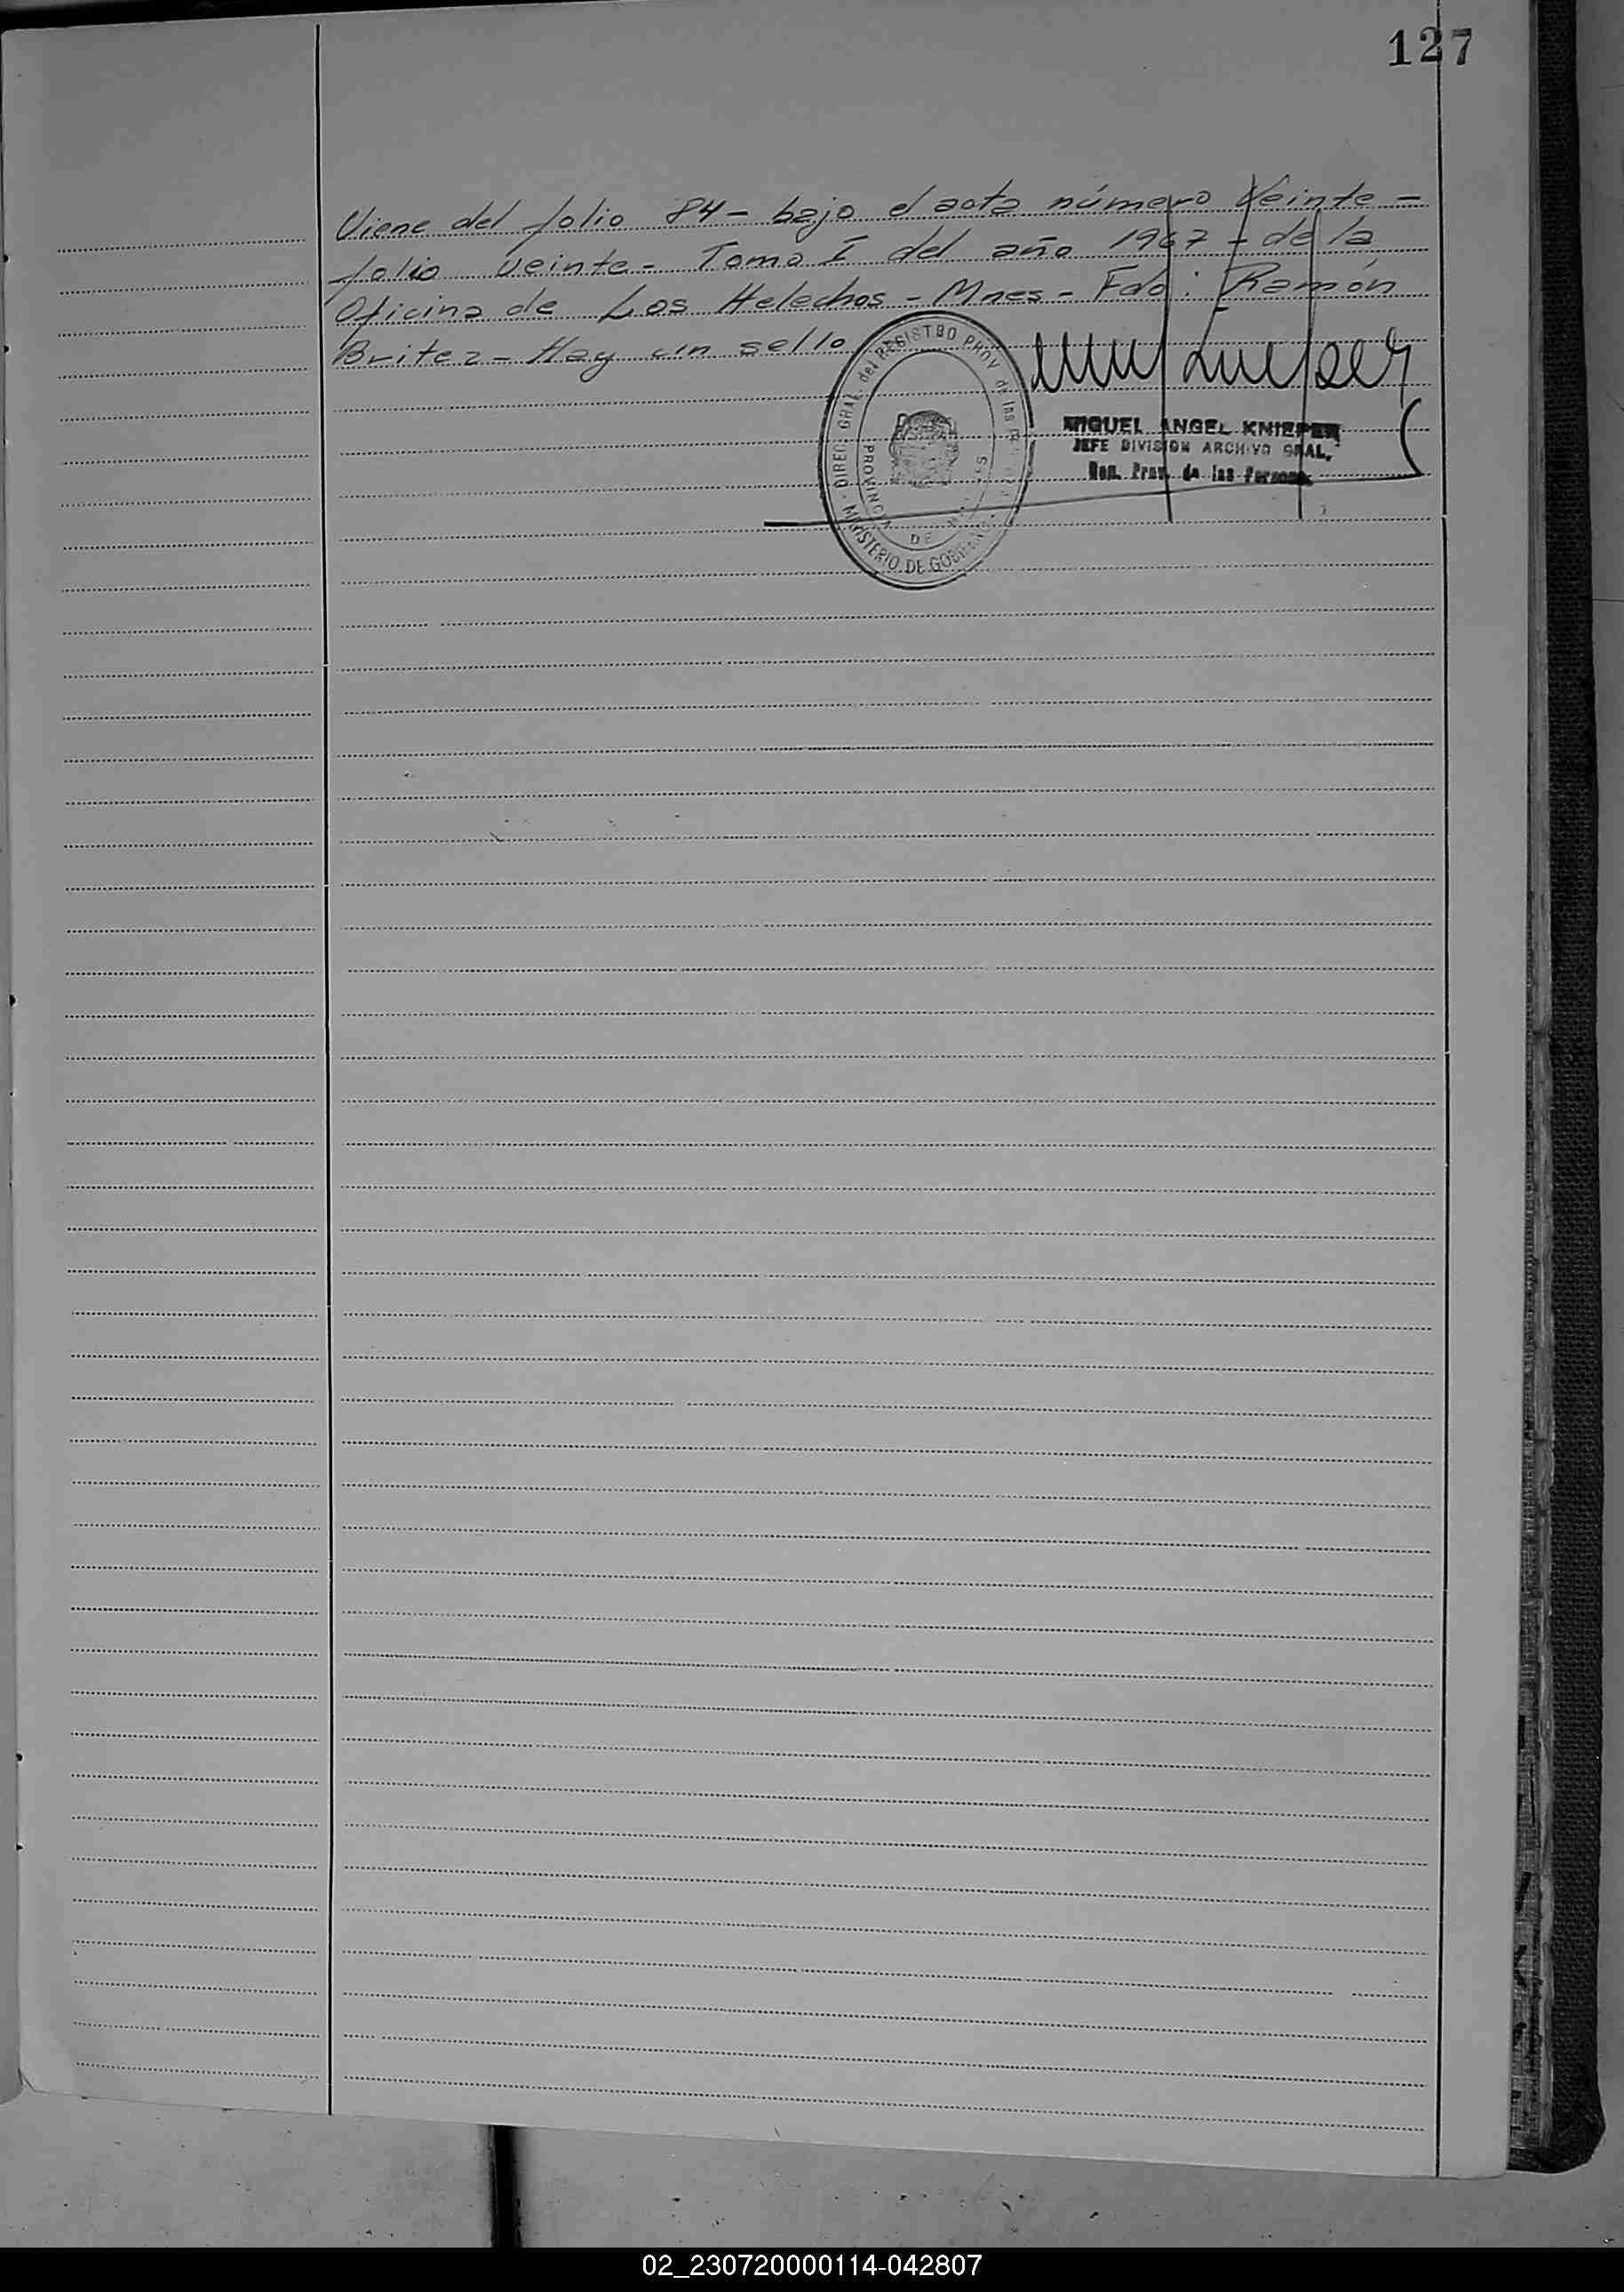 127
Viene del folio 84 - bajo el acta número Veinte -
folio veinte - Tomo I del año 1967 - de la
Oficina de Los Helechos - Mnes - Fdo: Ramón
Britez - Hay un sello
DIREC. GRAL. del REGISTRO PROV de las
PROVINCIA DE
MINISTERIO DE
MIGUEL ANGEL KNIEPER
JEFE DIVISION ARCHIVO GRAL.
Prov. de las Personas
02_230720000114-042807